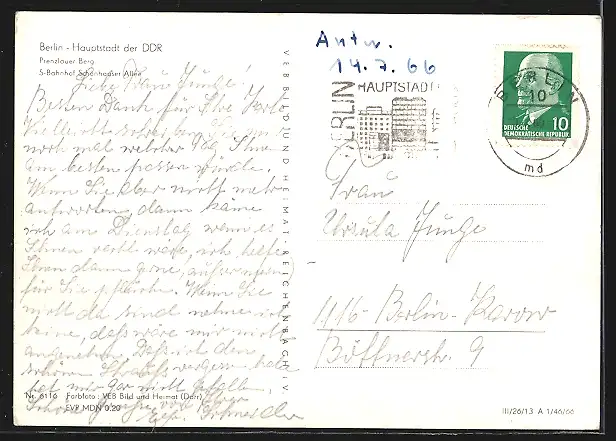 Berlin - Hauptstadt der DDR
Prenzlauer Berg
S-Bahnhof Schönhauser Allee
Liebe Frau Junge!
Besten Dank für Ihre
noch mal welcher Tag Ihnen
am besten passen würde.
Wenn Sie aber nicht mehr
antworten, dann käme
ich am Dienstag wenn es
Ihnen recht wäre, ich helfe
Ihnen dann gerne,
für Sie pflücke. Wenn Sie
nicht da sind nehme ich
keine, daß wäre mir nicht
angenehm. Daß ich den
schönen vergessen habe
hat mir gar nicht gefallen.
Schöne Grüße
Schneider
Nr. 6116 Farbfoto: VEB Bild und Heimat (Darr)
EVP MDN 0,20
VEB BILD UND HEIMAT REICHENBACH i V
Antw.
14.7.66
BERLIN
HAUPTSTADT
BERLIN
10
md
DEUTSCHE
DEMOKRATISCHE REPUBLIK
10
Frau
Ursula Junge
1116-Berlin-Karow
9
III/26/13 A 1/46/66